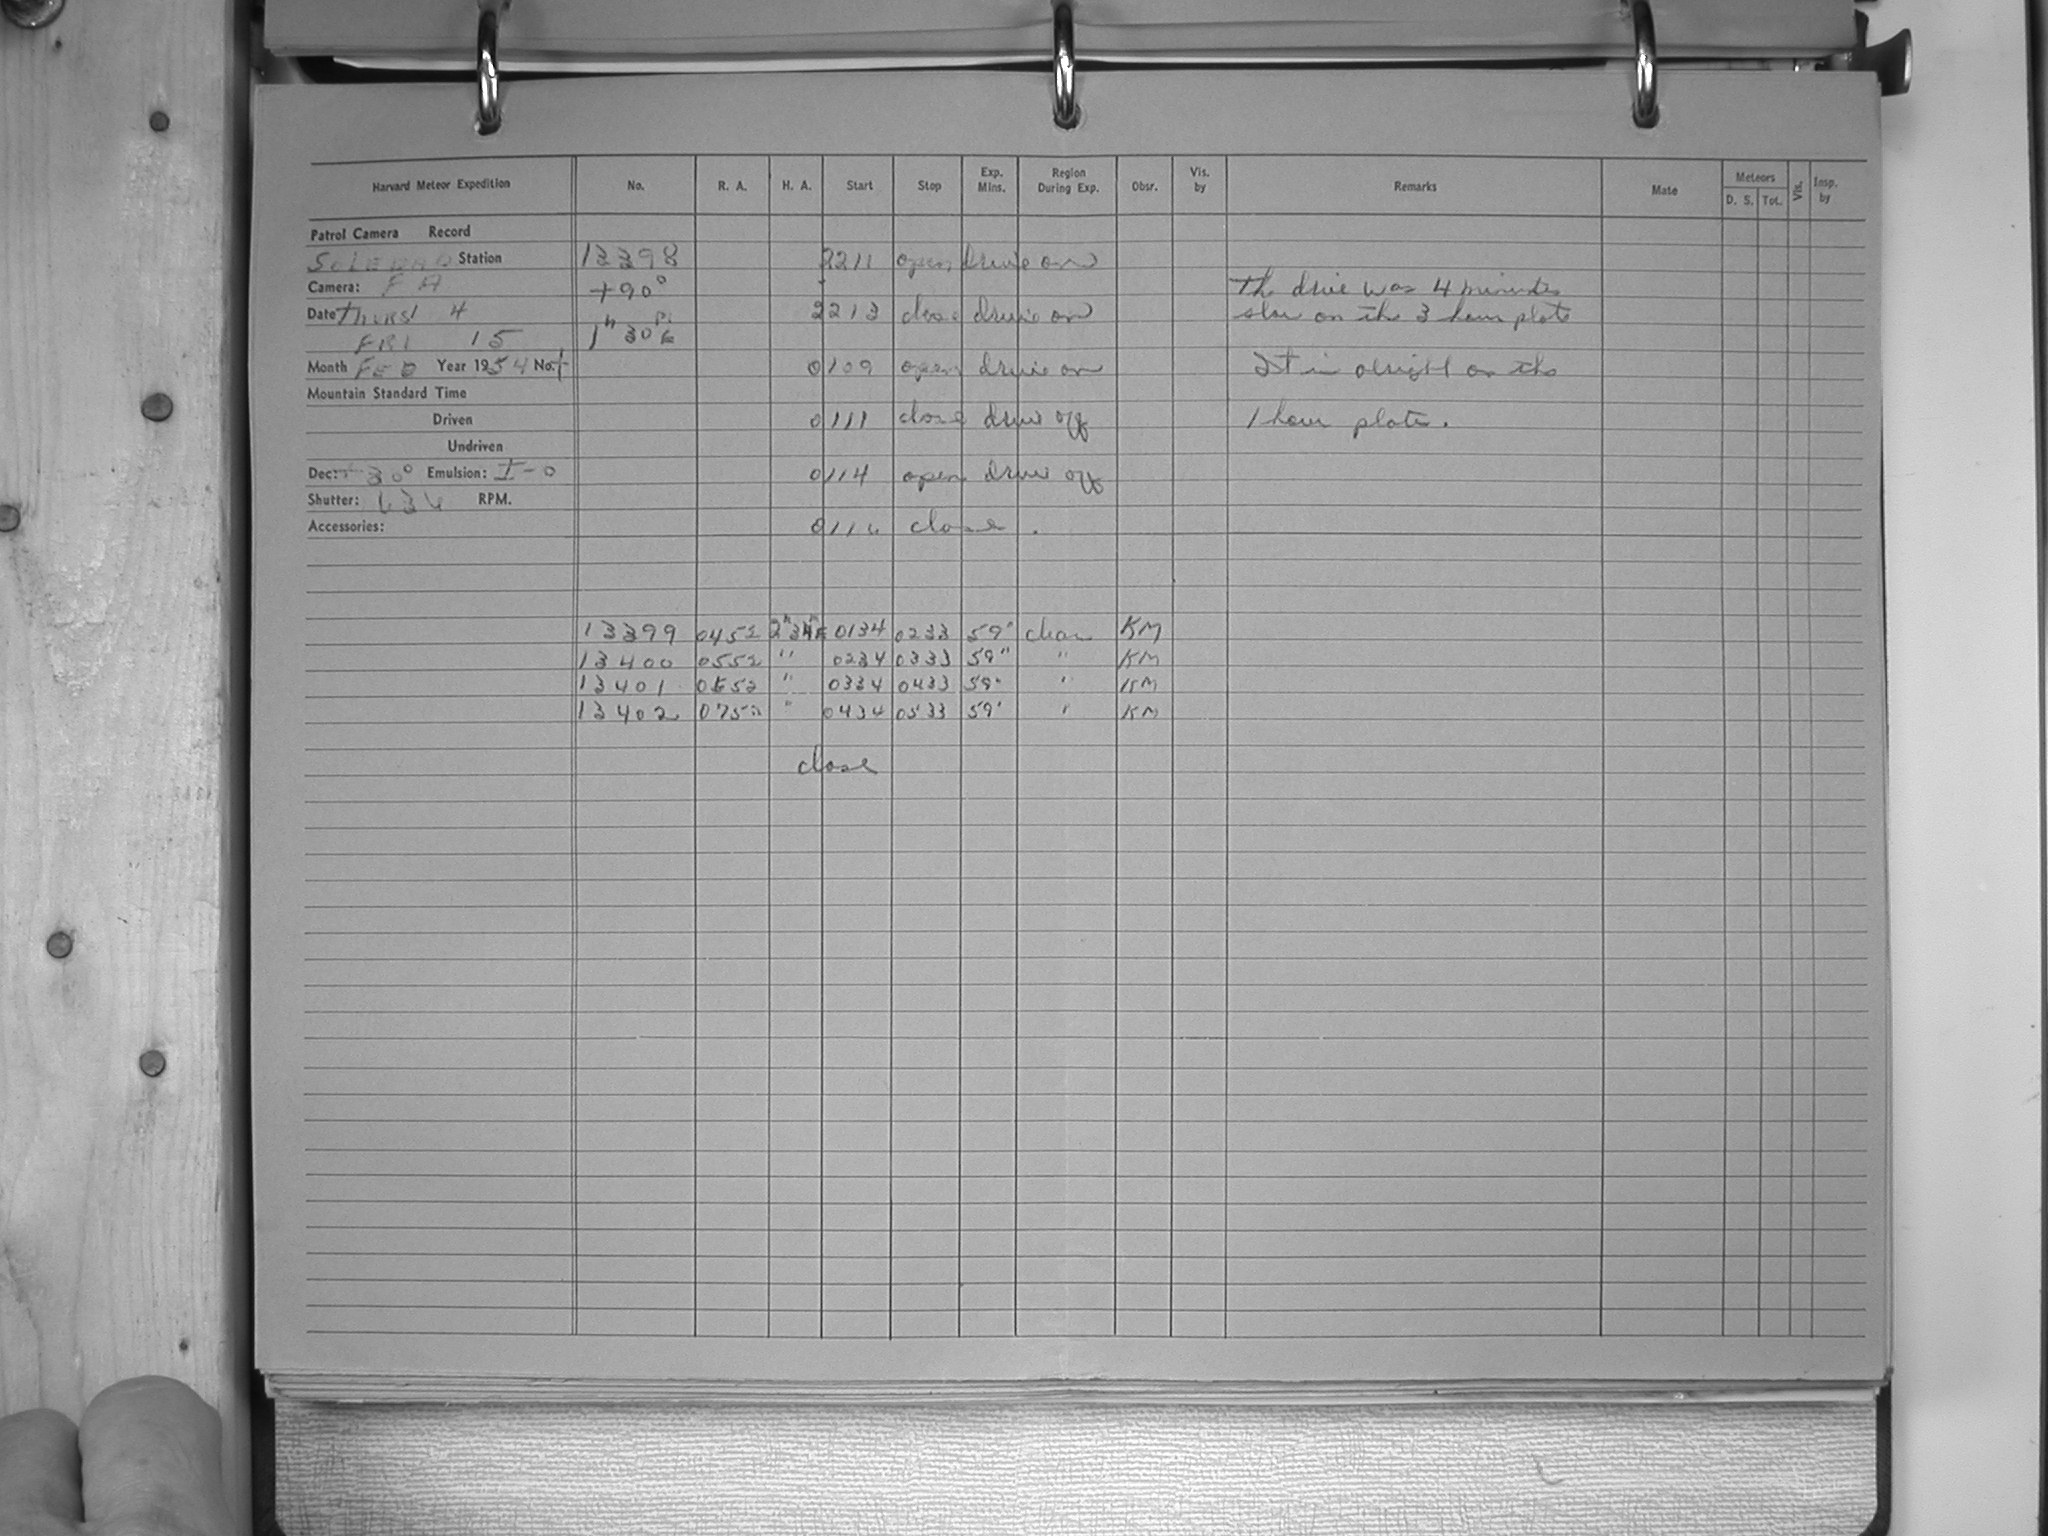 Harvard Meteor Expedition No. R. A. H. A. Start Stop Exp. Mins. Region During Exp. Obsr. Vis. by Remarks Mate Meteors D. S. Tot. Vis. Insp. by
Patrol Camera Record
SOLEDAD Station 13398 2211 open drive on
Camera: FA +90° The drive was 4 minutes
Date Thurs 4 2213 close drive on slow on the 3 hour plate
FRI 15 1h 30
Month FEB Year 1954 No. 0109 open drive on It is alright on the
Mountain Standard Time
Driven 0111 close drive off 1 hour plate.
Undriven
Dec: +30° Emulsion: I-0 0114 open drive off
Shutter: RPM.
Accessories: 0116 close.
13399 0452 0134 0233 59" clear KM
13400 0552 " 0234 0333 59" " KM
13401 " 0334 0433 59" " KM
13402 0752 " 0434 0533 59' " KM
close